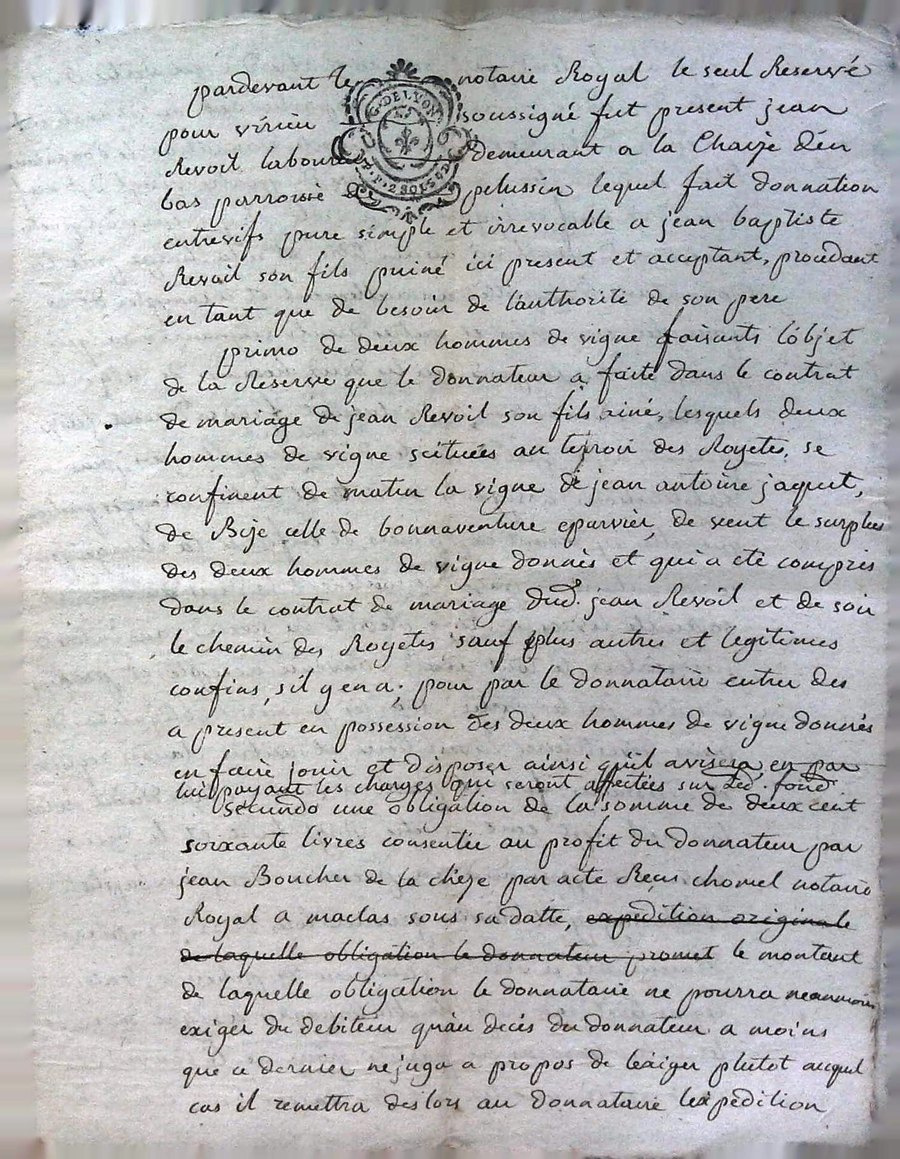 pardevant le notaire Royal le seul Reservé
G. DE LYON
pour virieu soussigné fut present jean
Revoil laboureur demeurant a la Chaize d'en
P.P. 2 SOLS 8 D
bas parroisse de pelussin lequel fait donnation
entrevifs pure simple et irrevocable a jean baptiste
Revoil son fils puiné ici present et acceptant, procedant
en tant que de besoin de l'authorité de son pere
primo de deux hommes de vigne faisants l'objet
de la Reserve que le donnateur a faite dans le contrat
de mariage de jean Revoil son fils ainé, lesquels deux
hommes de vigne scituées au terroir des Royetes, se
confinent de matin la vigne de jean antoine jaquet,
de Bize celle de bonnaventure eparvier, de vent le surplus
des deux hommes de vigne donnés et qui a eté compris
dans le contrat de mariage dud. jean Revoil et de soir
le chemin des Royetes sauf plus autres et legitimes
confins, s'il y en a; pour par le donnataire entrer des
a present en possession des deux hommes de vigne donnés
en faire jouir et disposer ainsi qu'il avisera, en par
lui payant les charges qui seront affectées sur led. fond.
secundo une obligation de la somme de deux cent
soixante livres consentie au profit du donnateur par
jean Boucher de la chéze par acte Reçu chomel notaire
Royal a maclas sous sa datte, expedition originale
de laquelle obligation le donnateur promet le montant
de laquelle obligation le donnataire ne pourra neanmoins
exiger du debiteur qu'au decés du donnateur a moins
que ce dernier ne juga a propos de l'exiger plutot auquel
cas il remettra des lors au donnataire l'expedition